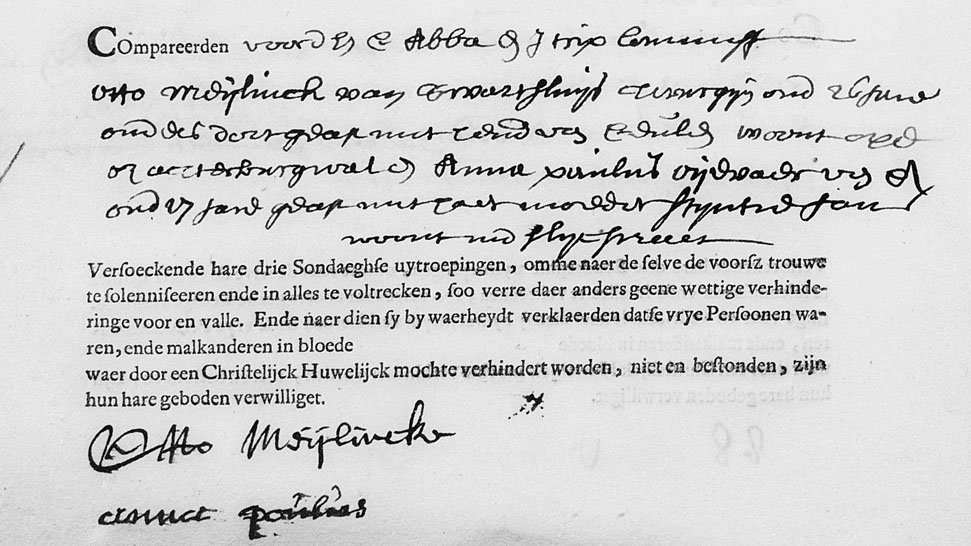 Compareerden voord H C Abba & J trip Commss
Otto Meijlinck van Swartsluijs Cirurgijn oud 26 Jare
oud geas met woont opd
o z achterburgwal & Anna paulus
oud 27 Jare geas met haer moeder Styntie Jans
woont ind slycstraet
Versoeckende hare drie Sondaeghse uytroepingen, omme naer de selve de voorsz trouwe
te solenniseeren ende in alles te voltrecken, soo verre daer anders geene wettige verhinde-
ringe voor en valle. Ende naer dien sy by waerheydt verklaerden datse vrye Persoonen wa-
ren, ende malkanderen in bloede
waer door een Christelijck Huwelijck mochte verhindert worden, niet en bestonden, zijn
hun hare geboden verwilliget.
Otto Meijlincke
anna paulus